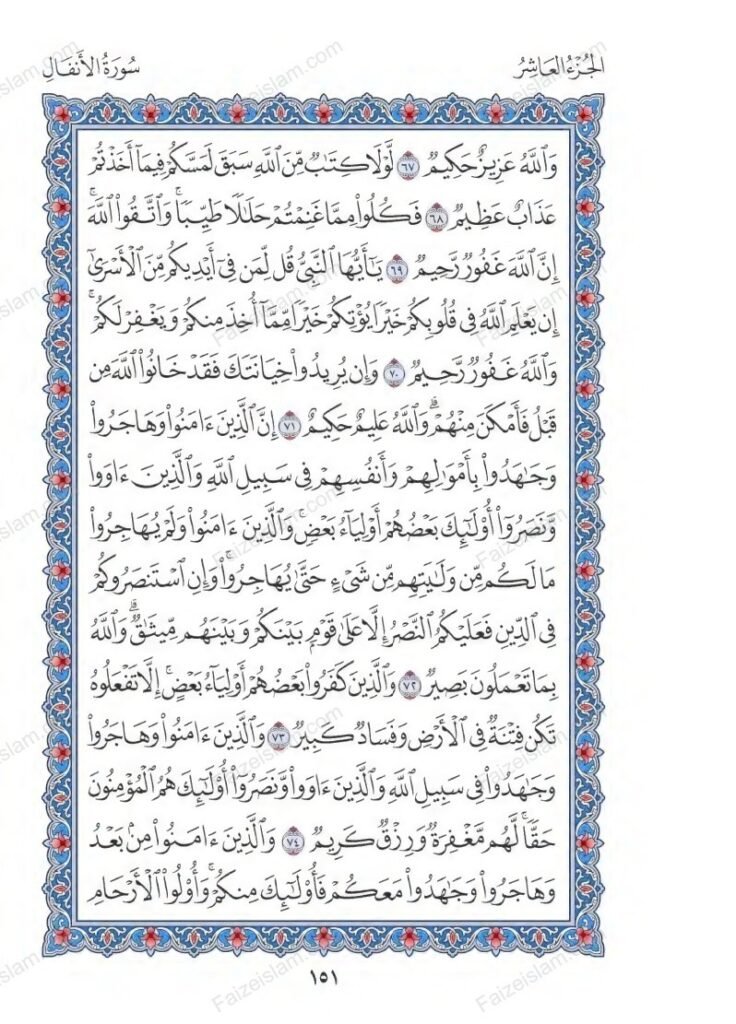 الجُزْءُ العَاشِرُ
سُورَةُ الأَنفَالِ
وَٱللَّهُ عَزِيزٌ حَكِيمٌ ٦٧ لَّوْلَا كِتَـٰبٌ مِّنَ ٱللَّهِ سَبَقَ لَمَسَّكُمْ فِيمَآ أَخَذْتُمْ
عَذَابٌ عَظِيمٌ ٦٨ فَكُلُوا۟ مِمَّا غَنِمْتُمْ حَلَـٰلًا طَيِّبًا ۚ وَٱتَّقُوا۟ ٱللَّهَ ۚ
إِنَّ ٱللَّهَ غَفُورٌ رَّحِيمٌ ٦٩ يَـٰٓأَيُّهَا ٱلنَّبِىُّ قُل لِّمَن فِىٓ أَيْدِيكُم مِّنَ ٱلْأَسْرَىٰٓ
إِن يَعْلَمِ ٱللَّهُ فِى قُلُوبِكُمْ خَيْرًا يُؤْتِكُمْ خَيْرًا مِّمَّآ أُخِذَ مِنكُمْ وَيَغْفِرْ لَكُمْ ۚ
وَٱللَّهُ غَفُورٌ رَّحِيمٌ ٧٠ وَإِن يُرِيدُوا۟ خِيَانَتَكَ فَقَدْ خَانُوا۟ ٱللَّهَ مِن
قَبْلُ فَأَمْكَنَ مِنْهُمْ ۗ وَٱللَّهُ عَلِيمٌ حَكِيمٌ ٧١ إِنَّ ٱلَّذِينَ ءَامَنُوا۟ وَهَاجَرُوا۟
وَجَـٰهَدُوا۟ بِأَمْوَٰلِهِمْ وَأَنفُسِهِمْ فِى سَبِيلِ ٱللَّهِ وَٱلَّذِينَ ءَاوَوا۟
وَّنَصَرُوٓا۟ أُو۟لَـٰٓئِكَ بَعْضُهُمْ أَوْلِيَآءُ بَعْضٍ ۚ وَٱلَّذِينَ ءَامَنُوا۟ وَلَمْ يُهَاجِرُوا۟
مَا لَكُم مِّن وَلَـٰيَتِهِم مِّن شَىْءٍ حَتَّىٰ يُهَاجِرُوا۟ ۚ وَإِنِ ٱسْتَنصَرُوكُمْ
فِى ٱلدِّينِ فَعَلَيْكُمُ ٱلنَّصْرُ إِلَّا عَلَىٰ قَوْمٍۭ بَيْنَكُمْ وَبَيْنَهُم مِّيثَـٰقٌ ۗ وَٱللَّهُ
بِمَا تَعْمَلُونَ بَصِيرٌ ٧٢ وَٱلَّذِينَ كَفَرُوا۟ بَعْضُهُمْ أَوْلِيَآءُ بَعْضٍ ۚ إِلَّا تَفْعَلُوهُ
تَكُن فِتْنَةٌ فِى ٱلْأَرْضِ وَفَسَادٌ كَبِيرٌ ٧٣ وَٱلَّذِينَ ءَامَنُوا۟ وَهَاجَرُوا۟
وَجَـٰهَدُوا۟ فِى سَبِيلِ ٱللَّهِ وَٱلَّذِينَ ءَاوَوا۟ وَّنَصَرُوٓا۟ أُو۟لَـٰٓئِكَ هُمُ ٱلْمُؤْمِنُونَ
حَقًّا ۚ لَّهُم مَّغْفِرَةٌ وَرِزْقٌ كَرِيمٌ ٧٤ وَٱلَّذِينَ ءَامَنُوا۟ مِنۢ بَعْدُ
وَهَاجَرُوا۟ وَجَـٰهَدُوا۟ مَعَكُمْ فَأُو۟لَـٰٓئِكَ مِنكُمْ ۚ وَأُو۟لُوا۟ ٱلْأَرْحَامِ
١٥١
Faizeislam.com